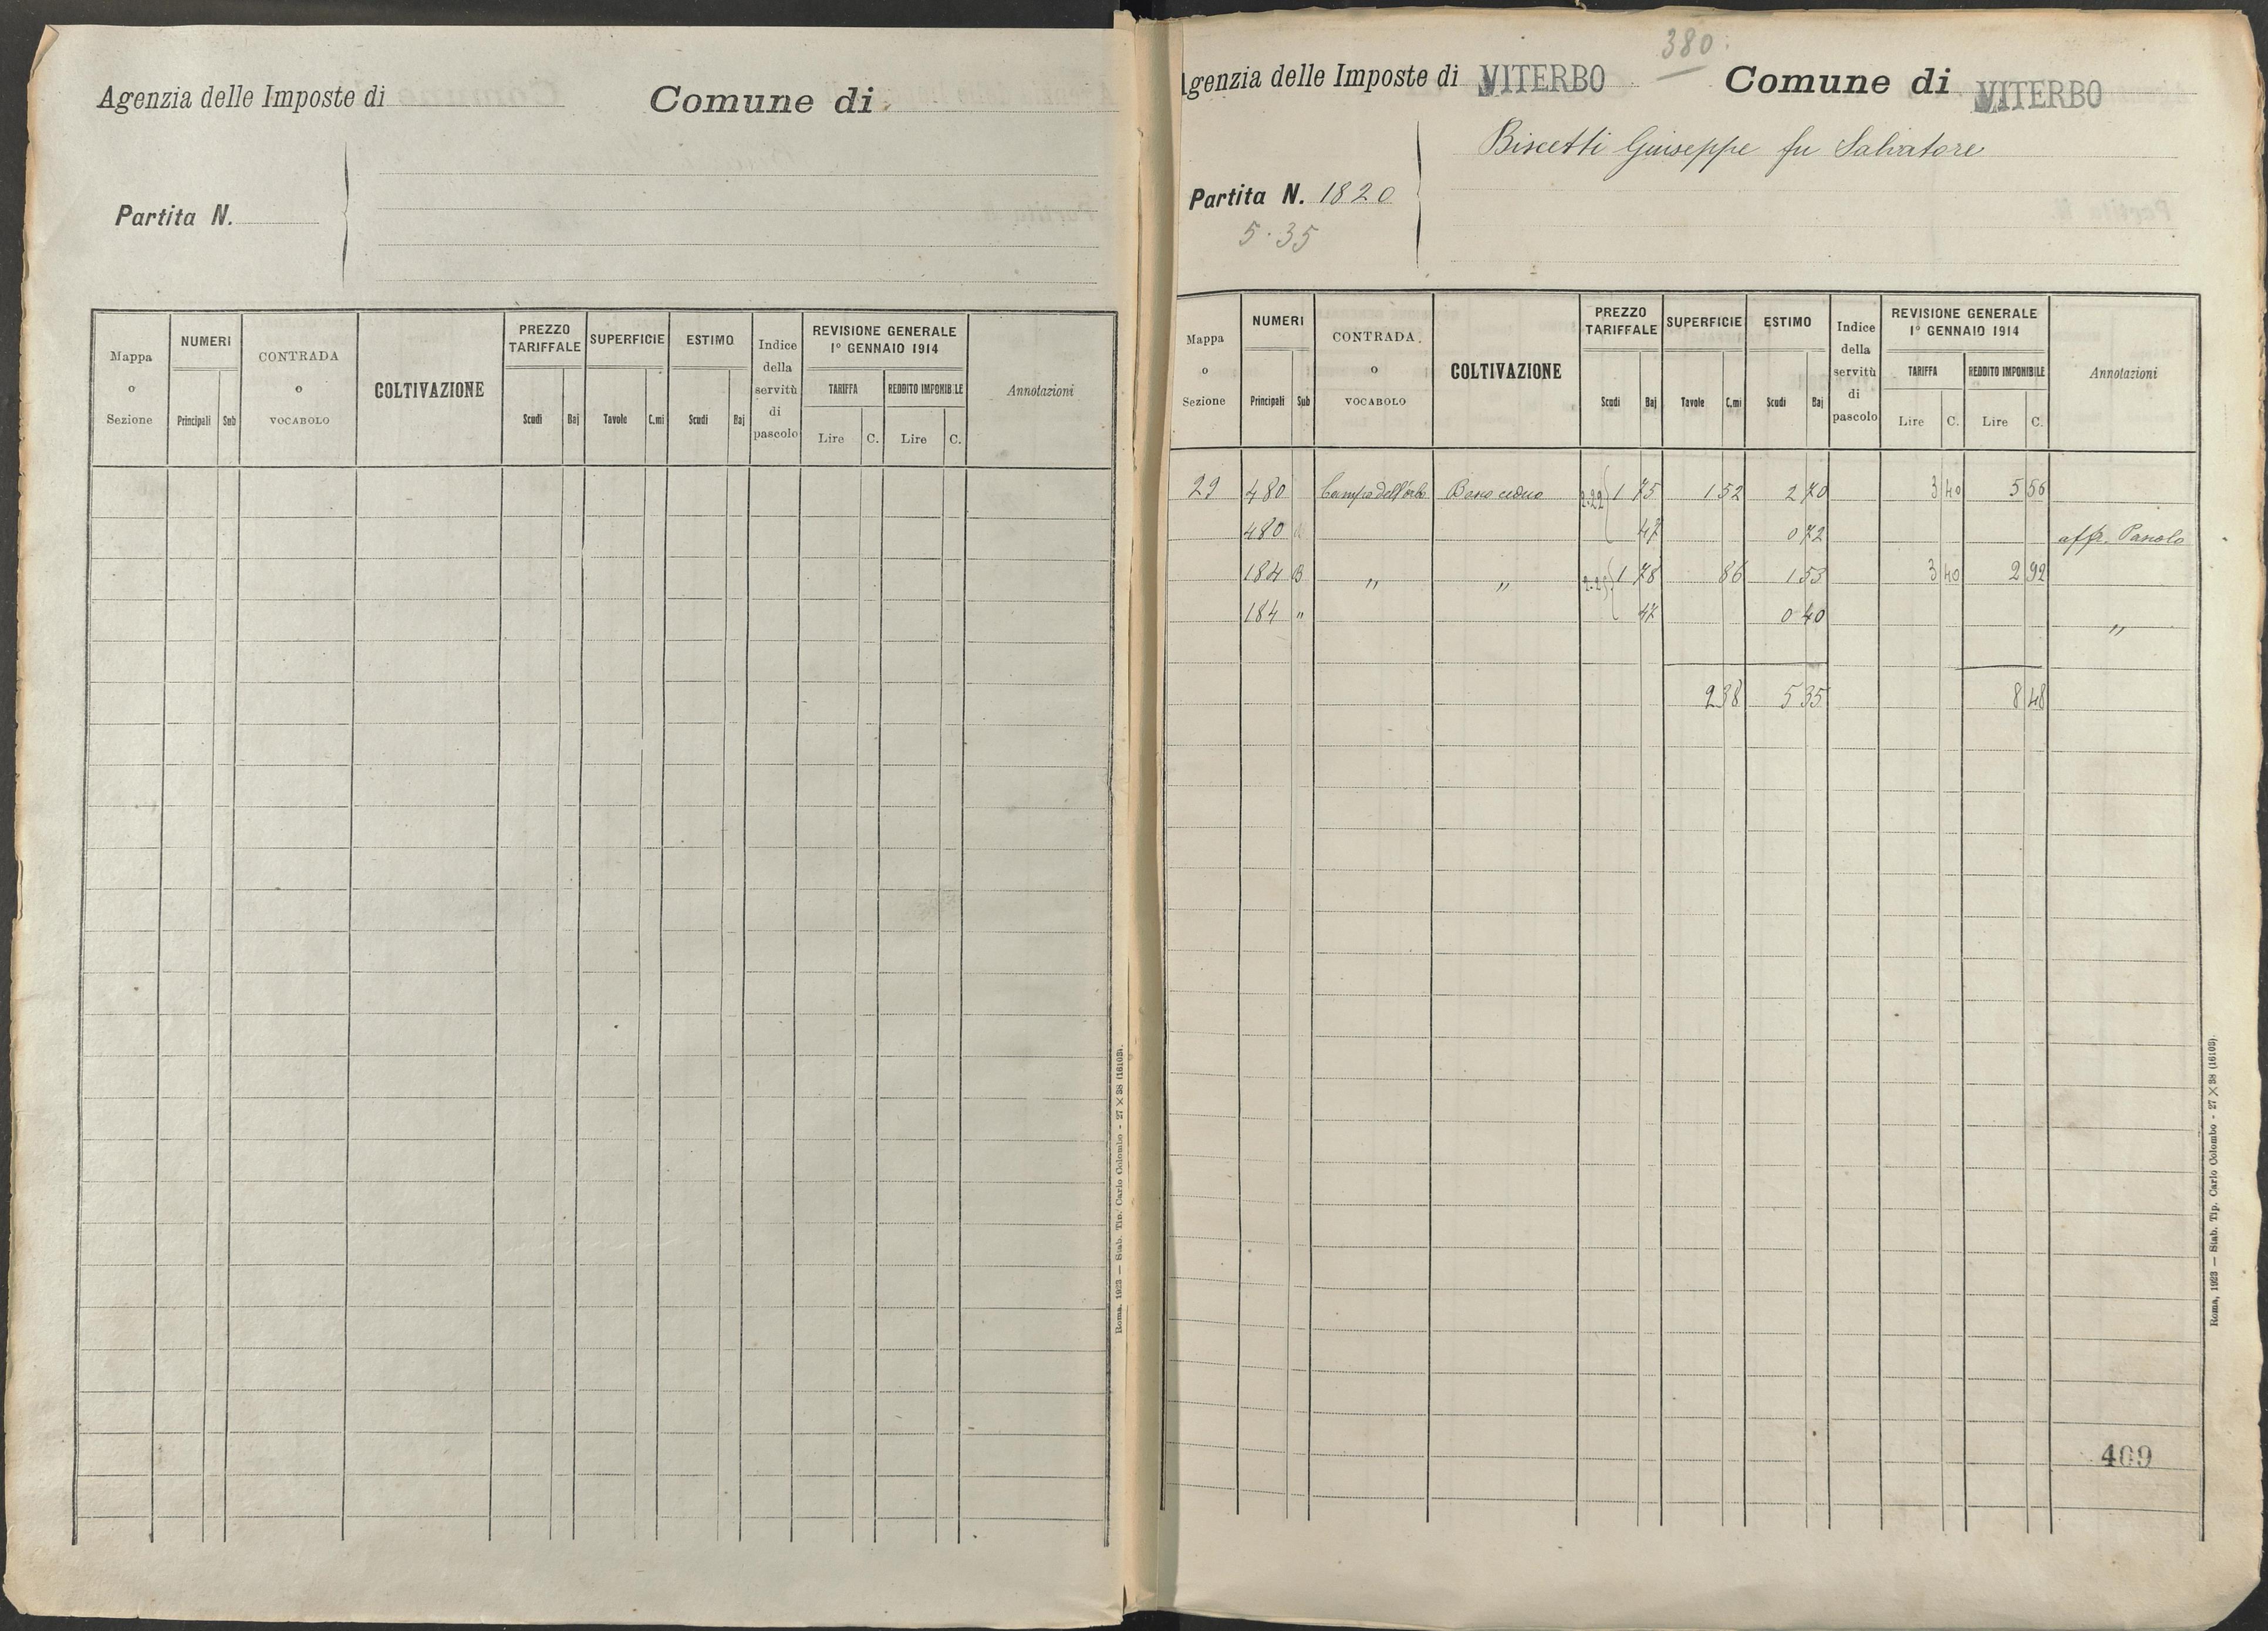 Agenzia delle Imposte di
Comune di
Partita N.
Mappa o Sezione
NUMERI
Principali Sub
CONTRADA o VOCABOLO
COLTIVAZIONE
PREZZO TARIFFALE
Scudi Baj
SUPERFICIE
Tavole C.mi
ESTIMO
Scudi Baj
Indice della servitù di pascolo
REVISIONE GENERALE
1° GENNAIO 1914
TARIFFA REDDITO IMPONIBILE
Lire C. Lire C.
Annotazioni
Roma, 1923 — Stab. Tip. Carlo Colombo - 27 X 38 (16103).
380.
Agenzia delle Imposte di VITERBO Comune di VITERBO
Biscetti Giuseppe fu Salvatore
Partita N. 1820
5.35
Mappa o Sezione
NUMERI
Principali Sub
CONTRADA o VOCABOLO
COLTIVAZIONE
PREZZO TARIFFALE
Scudi Baj
SUPERFICIE
Tavole C.mi
ESTIMO
Scudi Baj
Indice della servitù di pascolo
REVISIONE GENERALE
1° GENNAIO 1914
TARIFFA REDDITO IMPONIBILE
Lire C. Lire C.
Annotazioni
29 480 Bosco ceduo 2.22 1 75 1 52 2 70 3 40 5 56
480 47 0 72 affr. Pascolo
184 B " " 1 78 86 1 53 3 40 2 92
184 " 47 0 40 "
2 38 5 35 8 48
409
Roma, 1923 — Stab. Tip. Carlo Colombo - 27 X 38 (16103)